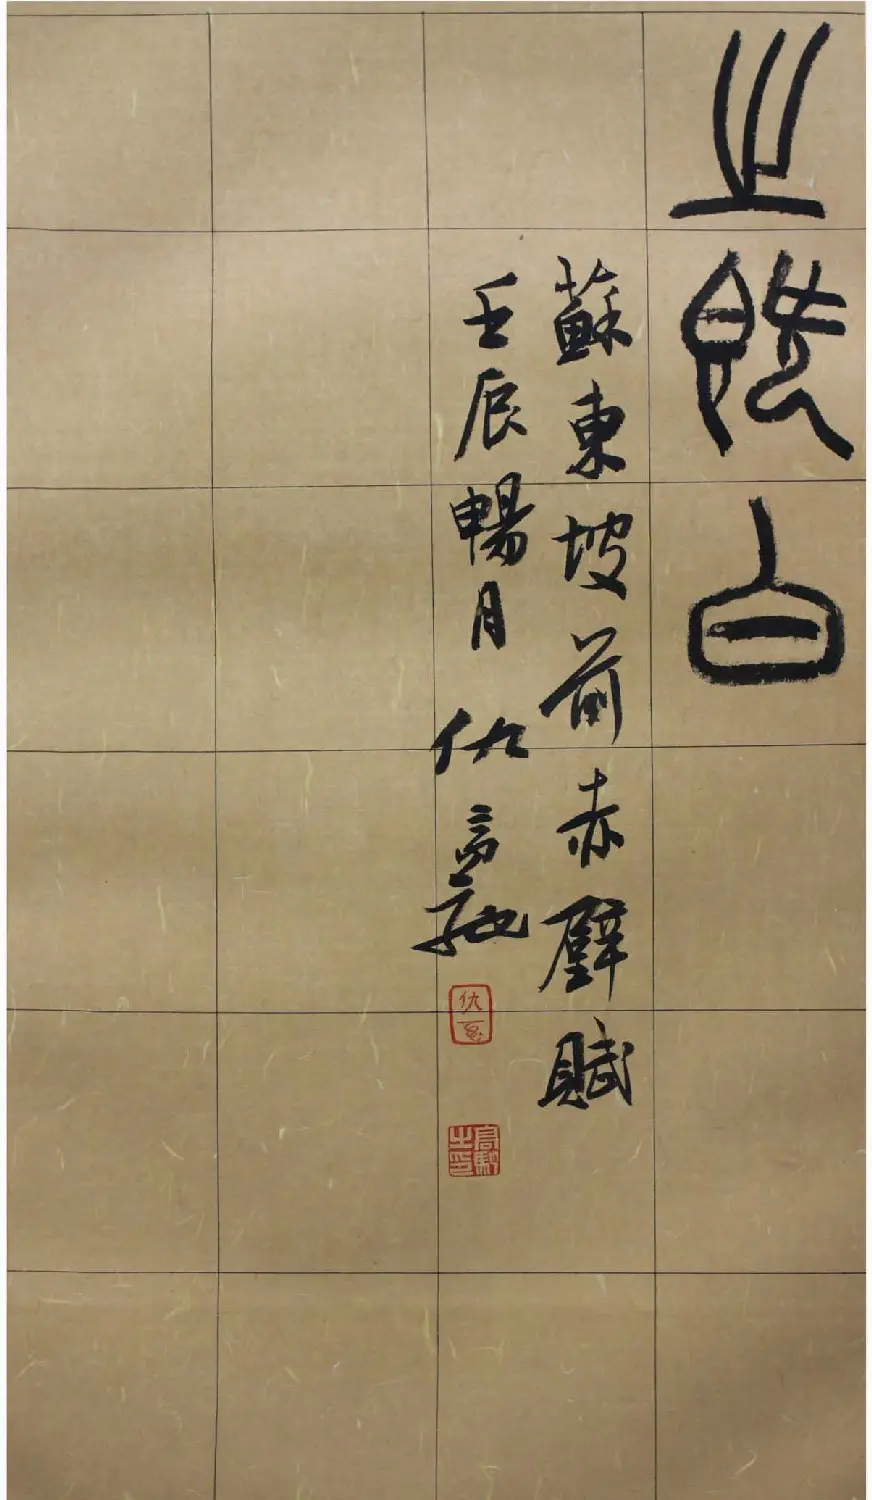 之既白
蘇東坡前赤壁賦
壬辰暢月 仇高馳
高馳之印